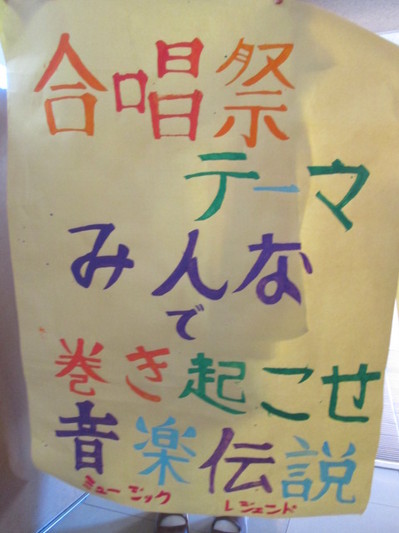 合唱祭
テーマ
みんな
で
巻き起こせ
音楽伝説
ミュージック レジェンド